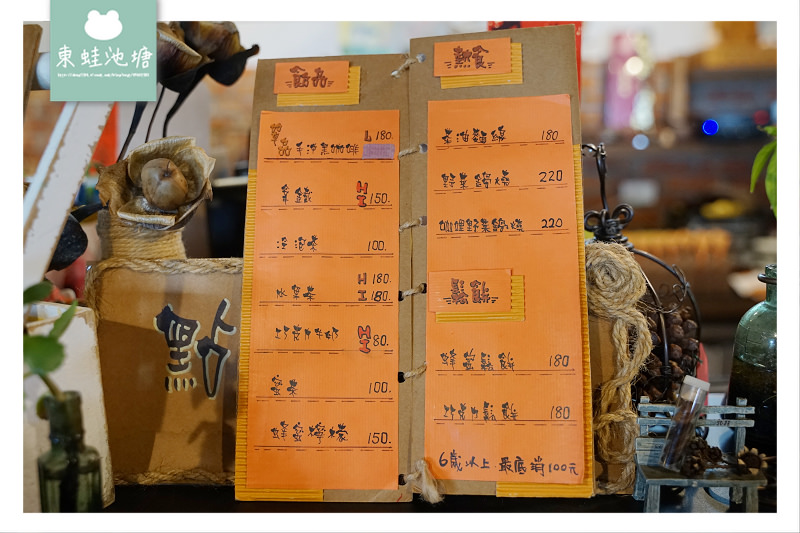 東蛙池塘
點
飲品
單品 手沖黑咖啡 L 180.
拿鐵 H I 150.
浸泡茶 100.
水果茶 H 180. I 180.
巧克力牛奶 H I 80.
蜜棗 100.
蜂蜜檸檬 150.
熱食
茶油麵線 180
野菜鍋燒 220
咖哩野菜鍋燒 220
鬆餅
蜂蜜鬆餅 180
巧克力鬆餅 180
6歲以上 最底消100元